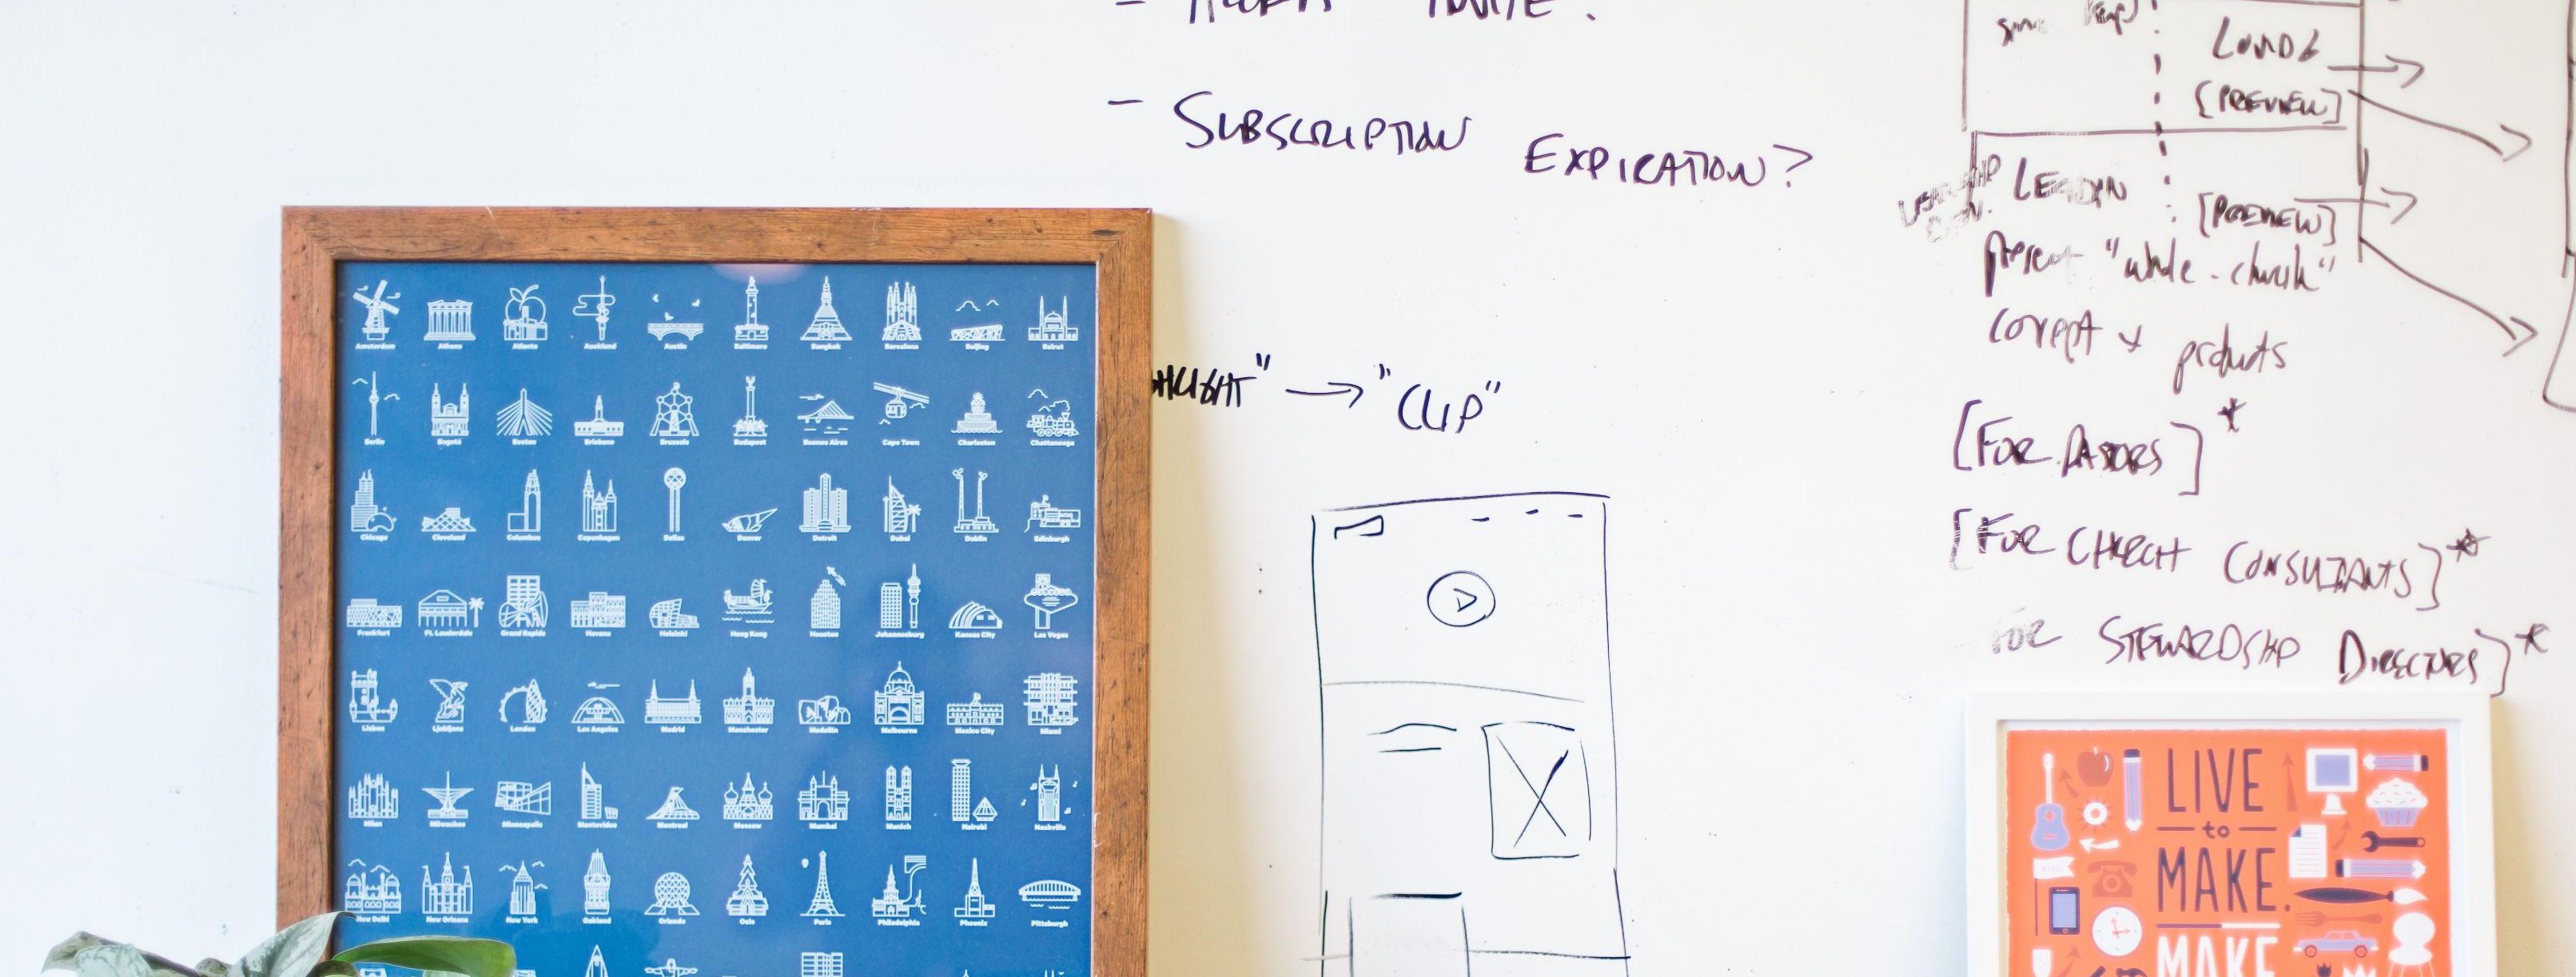 - SUBSCRIPTION EXPIRATION?
" → "CLIP"
[PREVIEW]
[PREVIEW]
"whole-church"
products
[FOR PASTORS]*
[FOR CHURCH CONSULTANTS]*
FOR STEWARDSHIP DIRECTORS]*
Amsterdam Athens Atlanta Auckland Austin Baltimore Bangkok Barcelona Beijing Beirut
Berlin Bogotá Boston Brisbane Brussels Budapest Buenos Aires Cape Town Charleston Chattanooga
Chicago Cleveland Columbus Copenhagen Dallas Denver Detroit Dubai Dublin Edinburgh
Frankfurt Ft. Lauderdale Grand Rapids Havana Helsinki Hong Kong Houston Johannesburg Kansas City Las Vegas
Lisbon Ljubljana London Los Angeles Madrid Manchester Medellín Melbourne Mexico City Miami
Milan Milwaukee Minneapolis Montevideo Montreal Moscow Mumbai Munich Nairobi Nashville
New Delhi New Orleans New York Oakland Orlando Oslo Paris Philadelphia Phoenix Pittsburgh
LIVE
to
MAKE.
MAKE